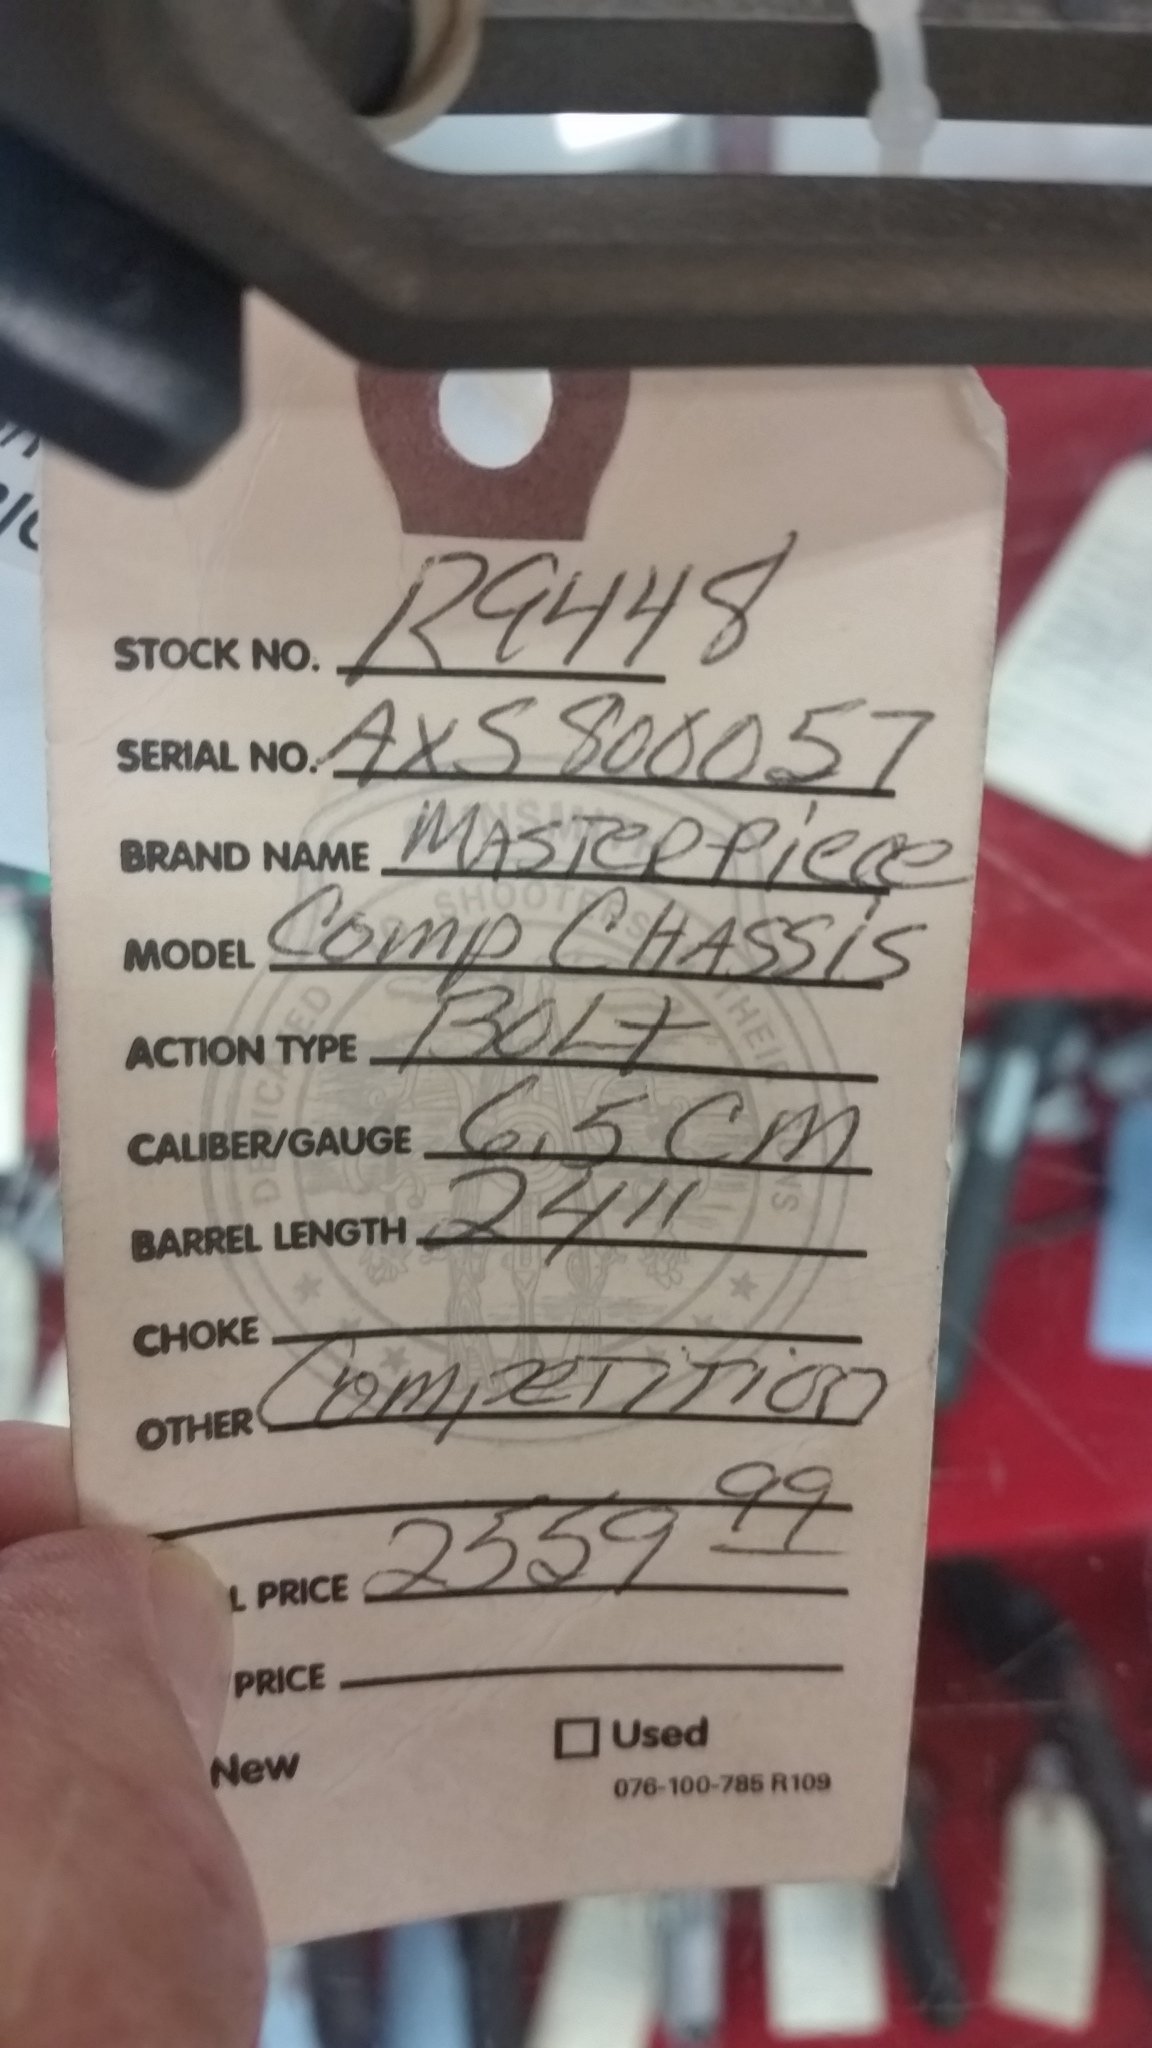 STOCK NO. R9448
SERIAL NO. AXS800057
BRAND NAME MASTERPiece
MODEL Comp CHASSiS
ACTION TYPE BOLT
CALIBER/GAUGE 6.5 CM
BARREL LENGTH 24"
CHOKE
OTHER COMPETITION
L PRICE 2559 99
PRICE
New
Used
076-100-785 R109
DEDICATED
SHOOTERS
THEIR